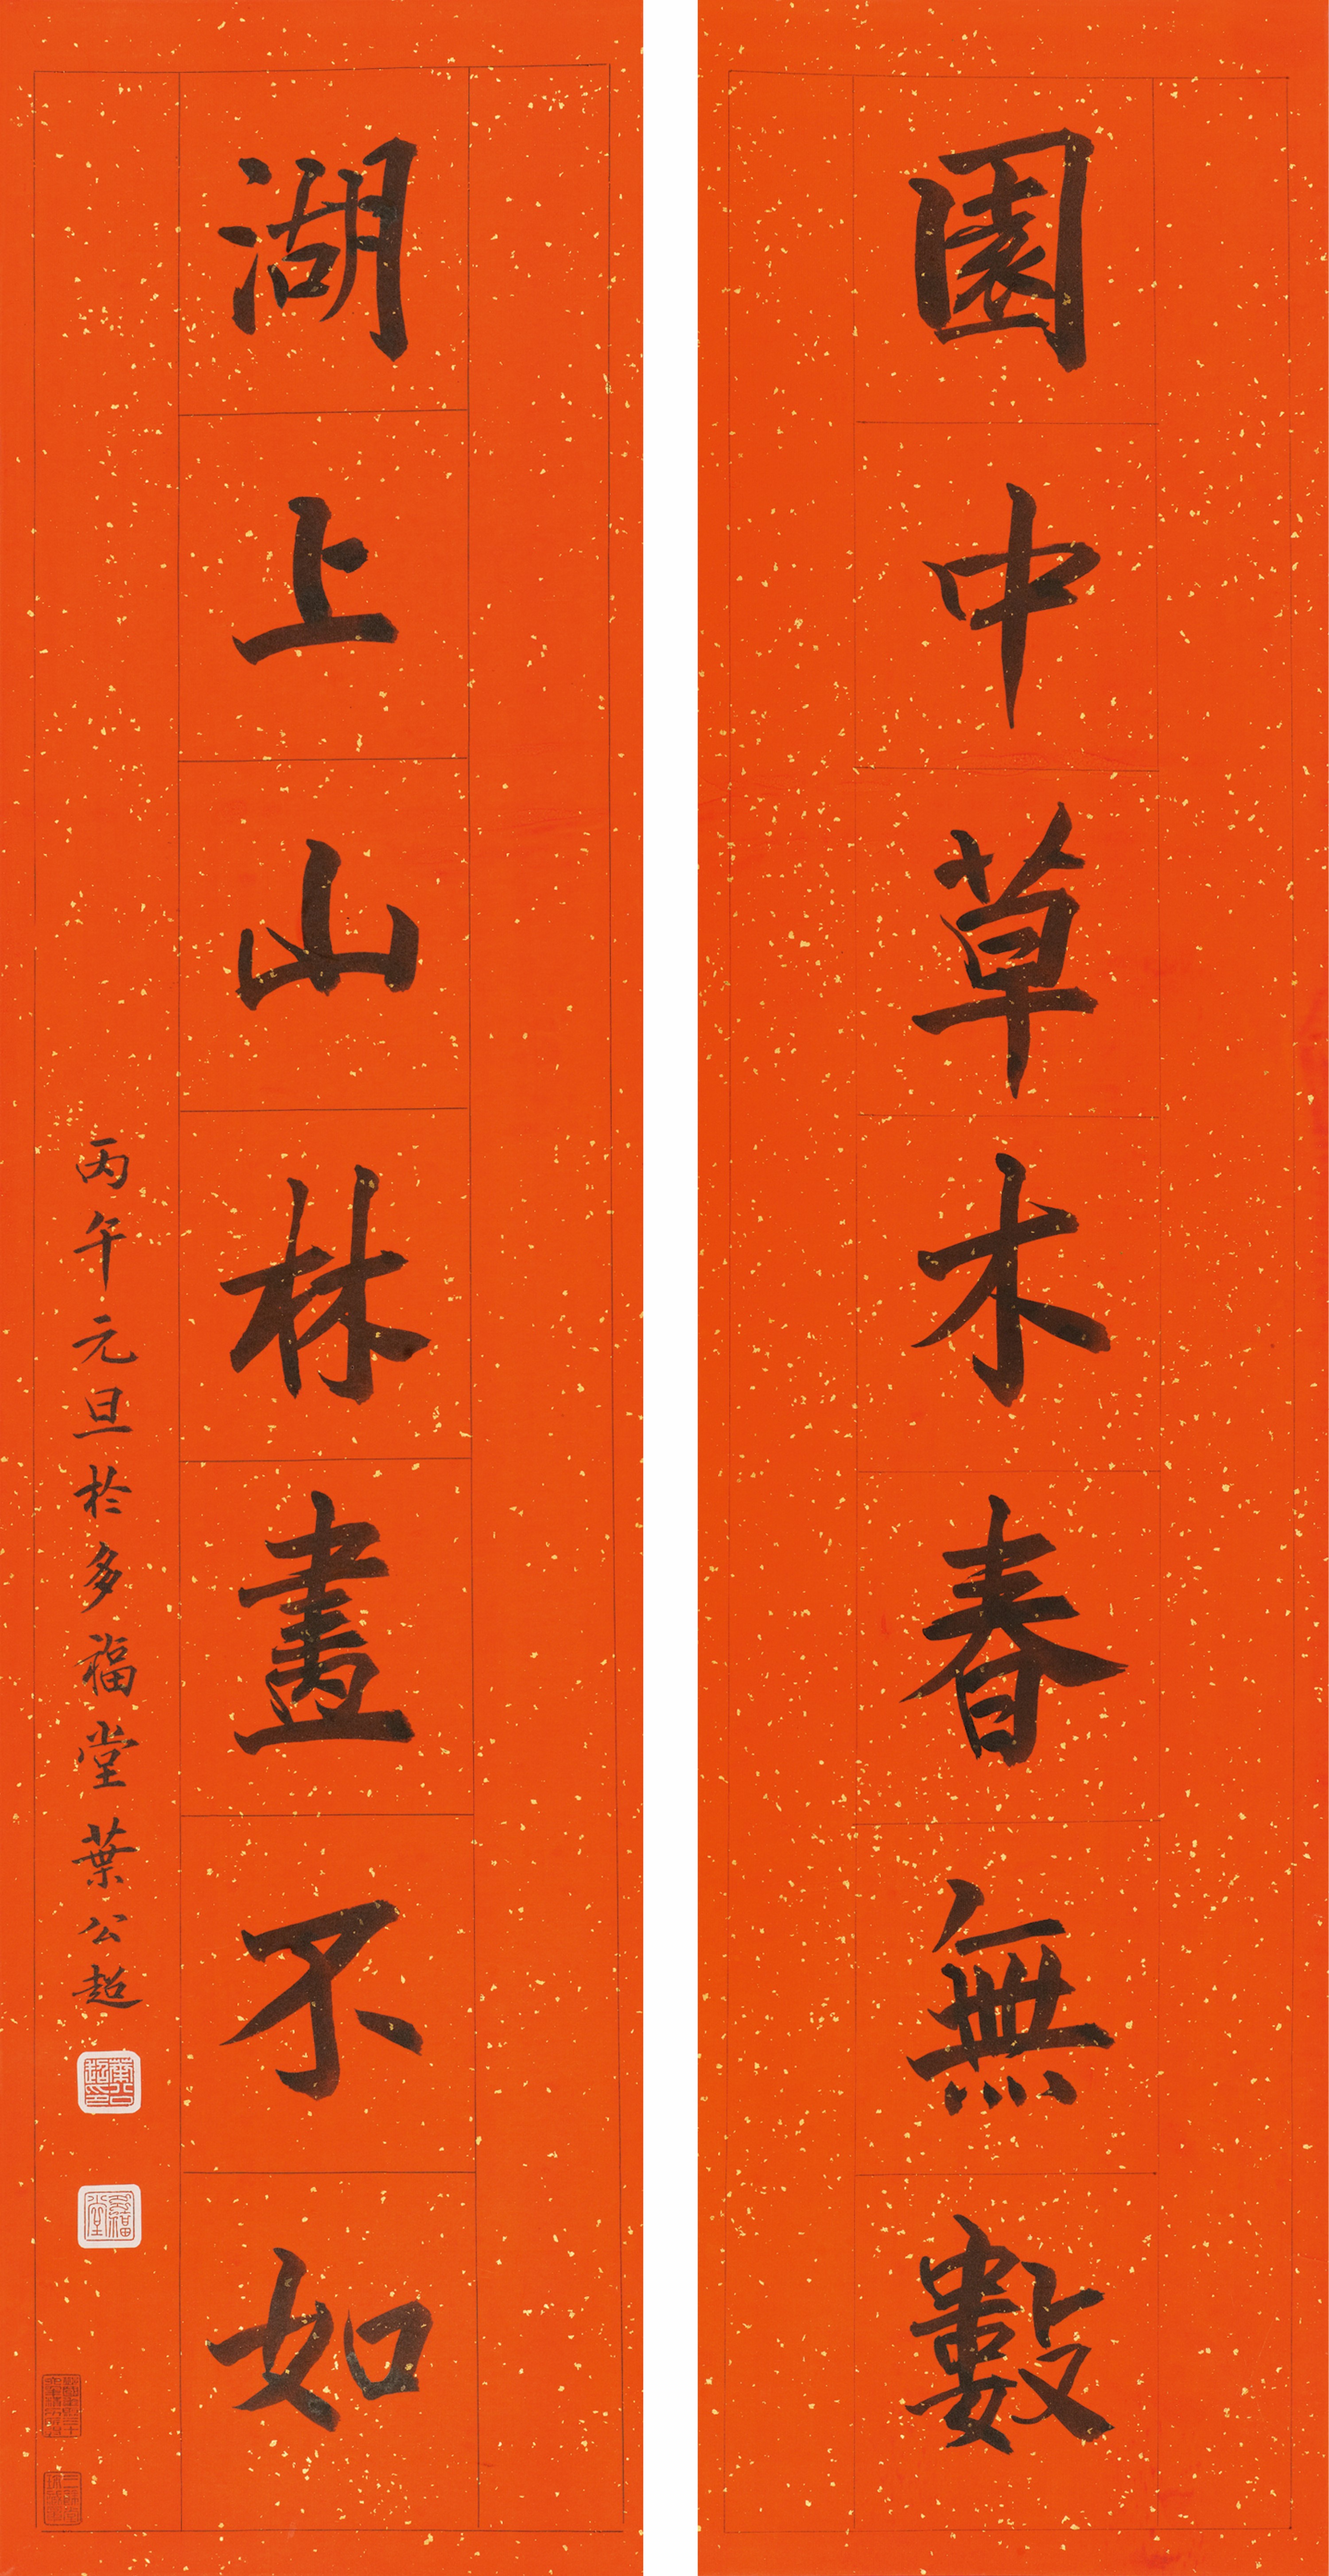 園中草木春無數
湖上山林畫不如
丙午元旦於多福堂葉公超
葉公超印
多福堂